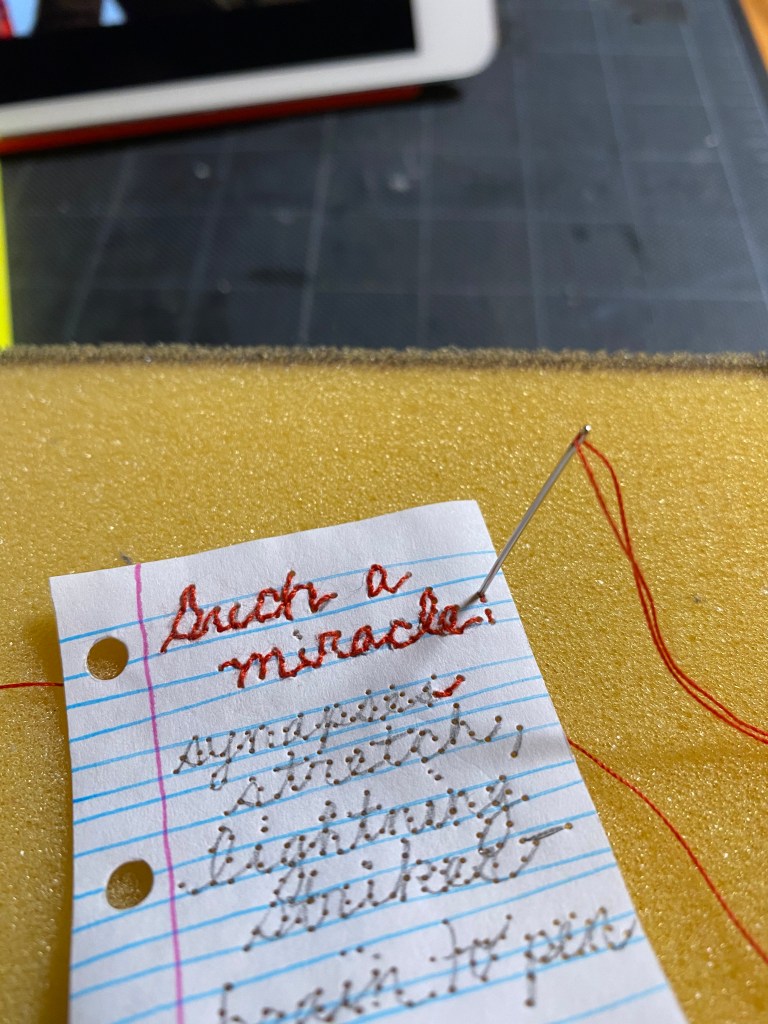 Such a
miracle:
synapses
stretch,
lightning
strikes—
brain to pen